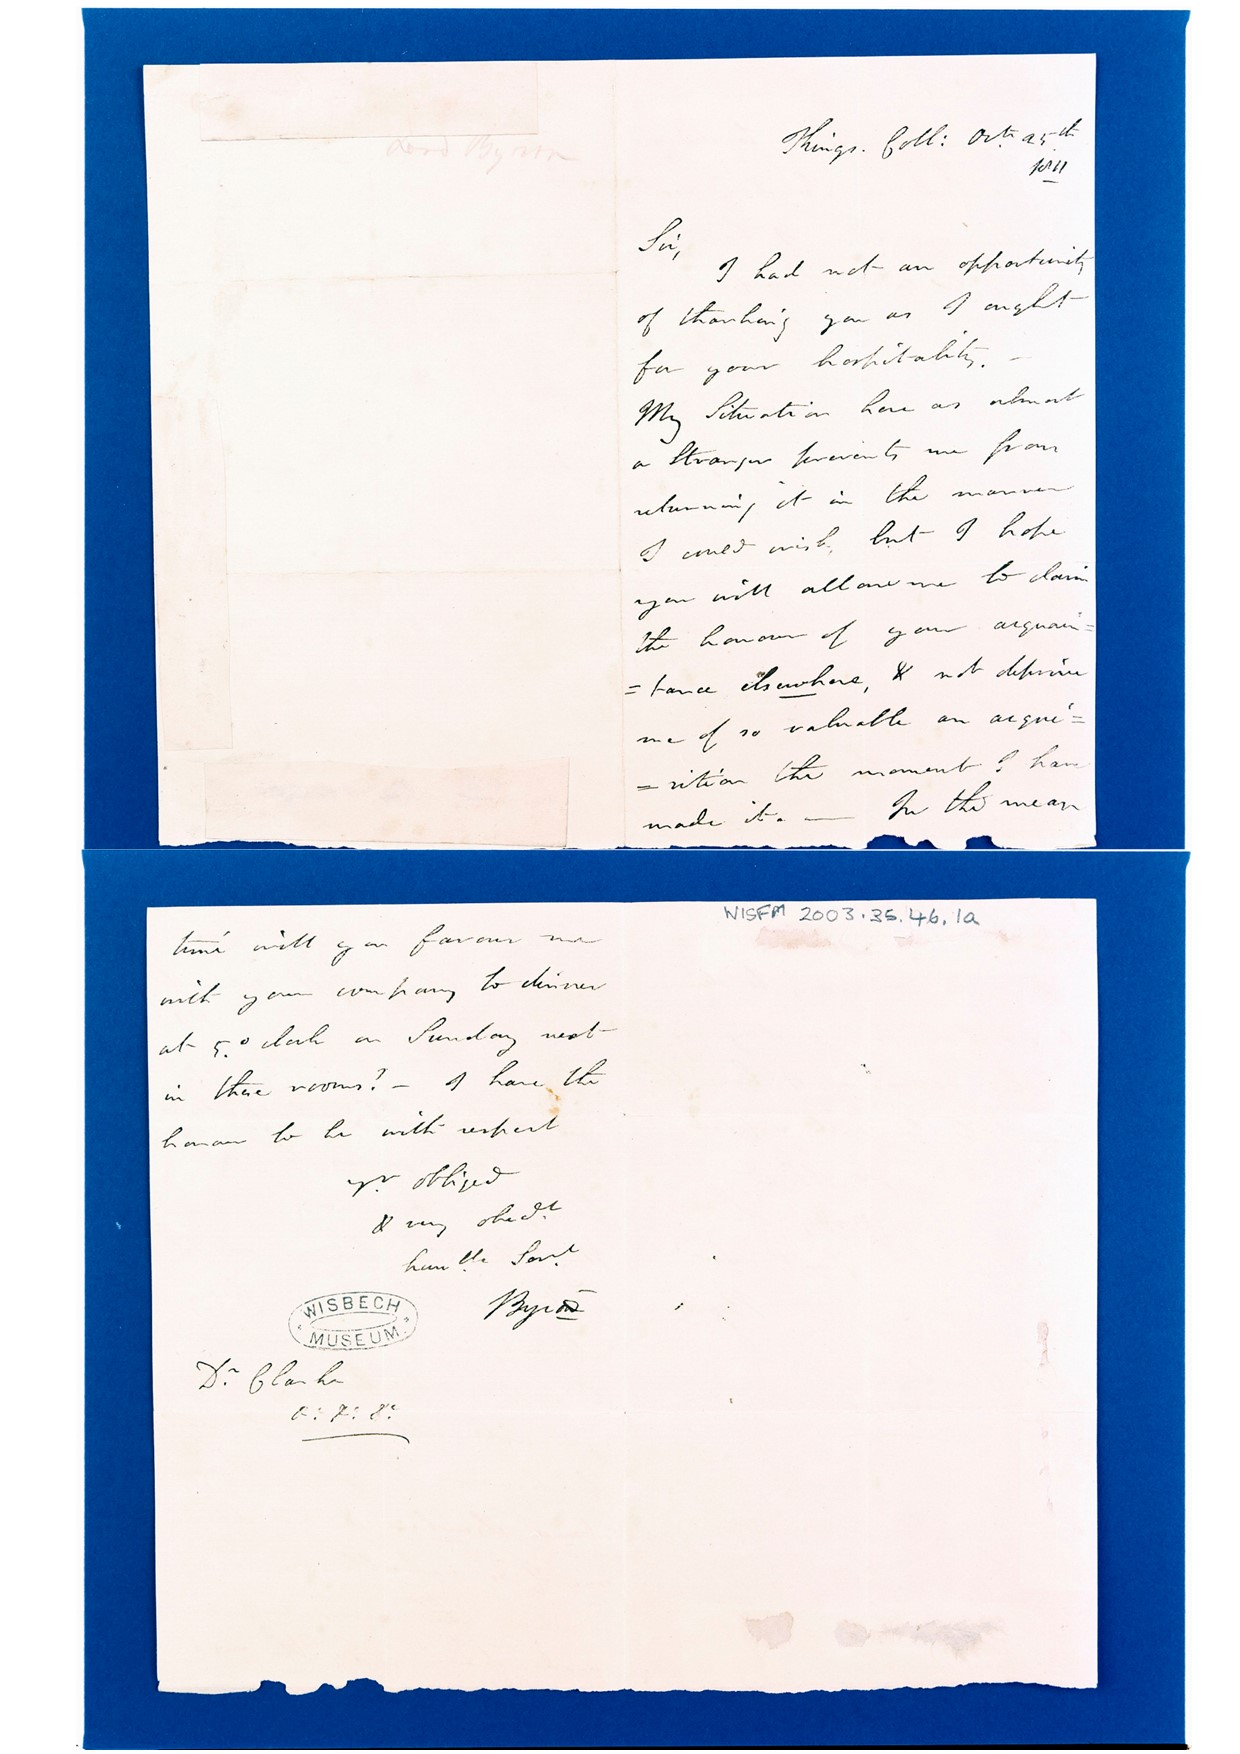 Lord Byron
Kings. Coll: Octr. 25th
1811
Sir,
I had not an opportunity
of thanking you as I ought
for your hospitality. —
My Situation here as almost
a Stranger prevents me from
returning it in the manner
I could wish, but I hope
you will allow me to claim
the honour of your acquain=
=tance elsewhere, & not deprive
me of so valuable an acqui=
=sition the moment I have
made it. — In the mean
WISFM 2003.35.46.1a
time will you favour me
with your company to dinner
at 5. o clock on Sunday next
in these rooms? — I have the
honour to be with respect
yr. obliged
& very obedt.
humble Servt.
Byron
WISBECH
MUSEUM
Dr. Clarke